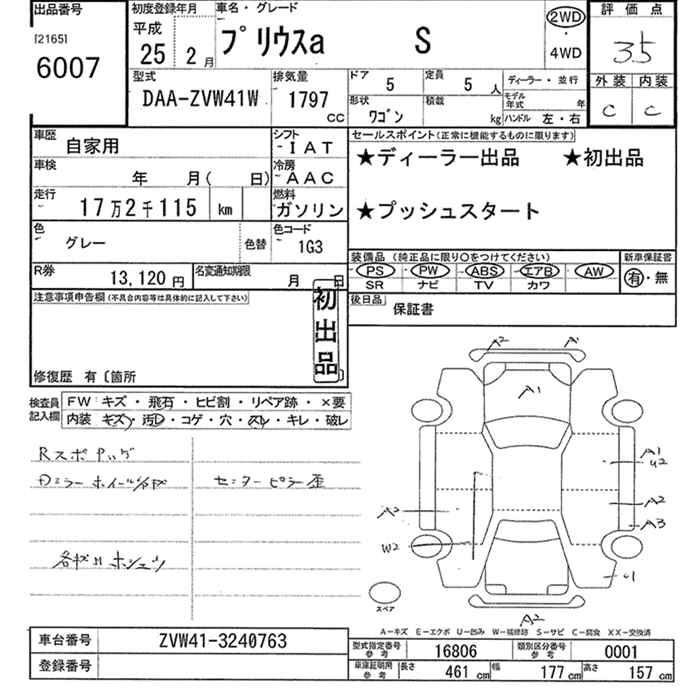 出品番号
[2165]
6007
初度登録年月
平成
25 2 月
車名・グレード
プリウスa S
2WD
・
4WD
評価点
3.5
外装 内装
C C
型式
DAA-ZVW41W
排気量
1797
CC
ドア 5
定員 5 人
形状 ワゴン
積載 kg
ディーラー・並行
モデル年式 年
ハンドル 左・右
車歴
自家用
シフト
-IAT
車検
年 月( 日)
冷房
AAC
走行
17万2千115 km
燃料
ガソリン
色
グレー
色替
色コード
1G3
R券
13,120 円
名変通知期限
月 日
セールスポイント(正常に機能するものに限ります)
★ディーラー出品 ★初出品
★プッシュスタート
装備品 (純正品に限り○をつけてください)
PS PW ABS エアB AW
SR ナビ TV カワ
新車保証書
有・無
後日品
保証書
注意事項申告欄(不具合内容等は具体的に記入して下さい)
初出品
修復歴 有〔箇所 〕
検査員記入欄
FW キズ・飛石・ヒビ割・リペア跡・×要
内装 キズ・汚レ・コゲ・穴・スレ・キレ・破レ
センターピラー歪
A2 A1
A1
A1
U2
A2
A3
A2
W2
U1
A2
スペア
A-キズ E-エクボ U-凹み W-補修跡 S-サビ C-腐食 XX-交換済
車台番号
ZVW41-3240763
登録番号
型式指定番号 参考
16806
類別区分番号 参考
0001
車庫証明用 参考
長さ 461 cm 幅 177 cm 高さ 157 cm